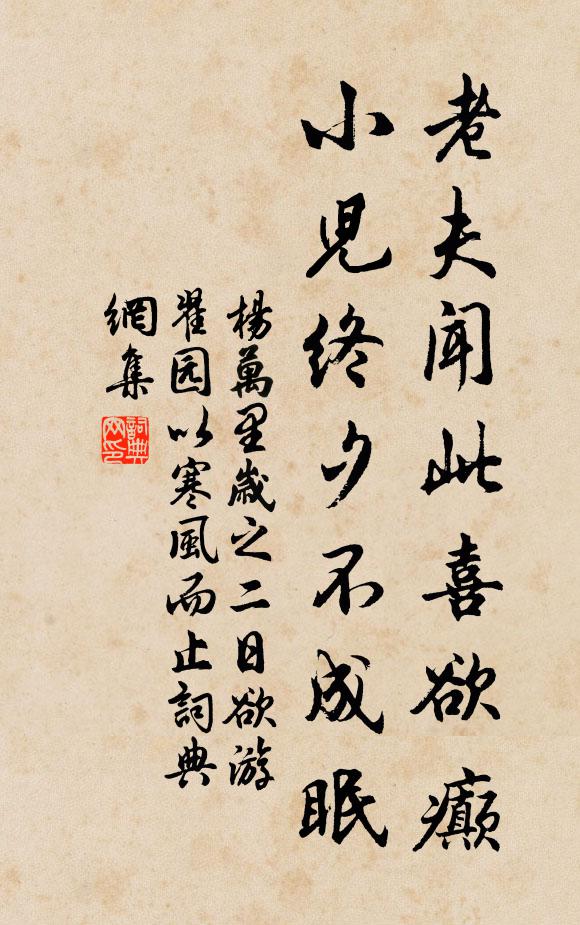 老夫聞此喜欲癲
小兒終夕不成眠
楊萬里歲之二日欲游
翟园以寒風而止詞典
網集
詞典
网印